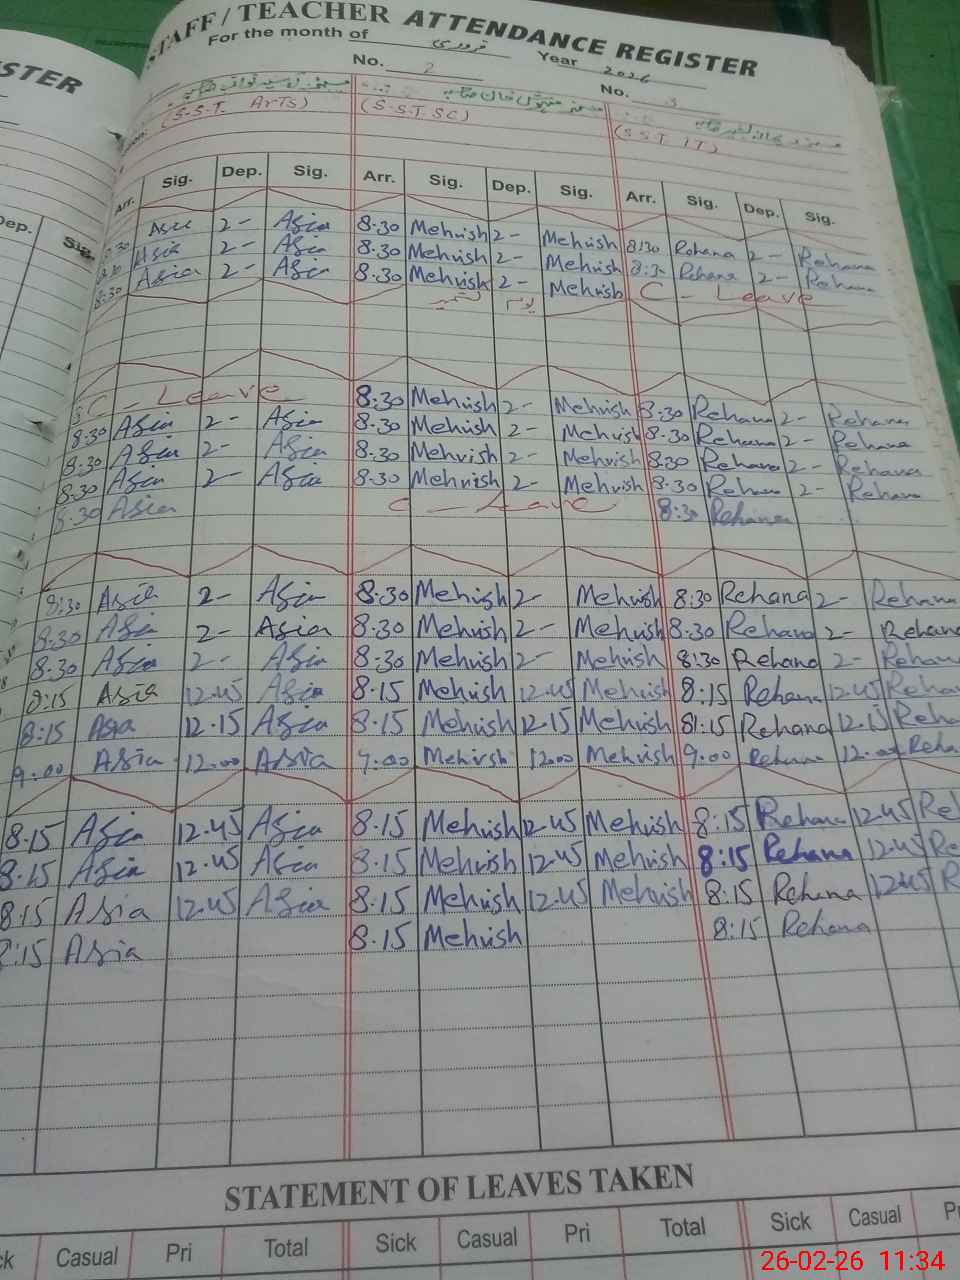 STER
STAFF / TEACHER ATTENDANCE REGISTER
For the month of فروری Year 2026
No. 2 No. 3
(S.S.T. Arts) (S.S.T. SC) (S.S.T IT)
Dep. Sig. Arr. Sig. Dep. Sig. Arr. Sig. Dep. Sig. Arr. Sig. Dep. Sig.
8:30 Asia 2- Asia 8.30 Mehvish 2- Mehvish 8:30 Rehana 2- Rehana
8:30 Asia 2- Asia 8.30 Mehvish 2- Mehvish 8:30 Rehana 2- Rehana
8:30 Asia 2- Asia 8.30 Mehvish 2- Mehvish C - Leave
یوم کشمیر
C - Leave 8.30 Mehvish 2- Mehvish 8:30 Rehana 2- Rehana
8:30 Asia 2- Asia 8.30 Mehvish 2- Mehvish 8:30 Rehana 2- Rehana
8:30 Asia 2- Asia 8.30 Mehvish 2- Mehvish 8:30 Rehana 2- Rehana
8:30 Asia 2- Asia 8.30 Mehvish 2- Mehvish 8:30 Rehana 2- Rehana
8:30 Asia C - Leave 8:30 Rehana
8:30 Asia 2- Asia 8.30 Mehvish 2- Mehvish 8:30 Rehana 2- Rehana
8:30 Asia 2- Asia 8.30 Mehvish 2- Mehvish 8:30 Rehana 2- Rehana
8:30 Asia 2- Asia 8:30 Mehvish 2- Mehvish 8:30 Rehana 2- Rehana
8:15 Asia 12.45 Asia 8.15 Mehvish 12.45 Mehvish 8:15 Rehana 12.45 Reha
8:15 Asia 12.15 Asia 8.15 Mehvish 12.15 Mehvish 8:15 Rehana 12.15 Reha
9:00 Asia 12.00 Asia 9.00 Mehvish 12.00 Mehvish 9:00 Rehana 12.00 Reha
8.15 Asia 12.45 Asia 8.15 Mehvish 12.45 Mehvish 8:15 Rehana 12.45 Re
8.15 Asia 12.45 Asia 8.15 Mehvish 12.45 Mehvish 8:15 Rehana 12.45 Re
8:15 Asia 12.45 Asia 8.15 Mehvish 12.45 Mehvish 8:15 Rehana 12.45 R
8:15 Asia 8.15 Mehvish 8:15 Rehana
STATEMENT OF LEAVES TAKEN
ck Casual Pri Total Sick Casual Pri Total Sick Casual P
26-02-26 11:34